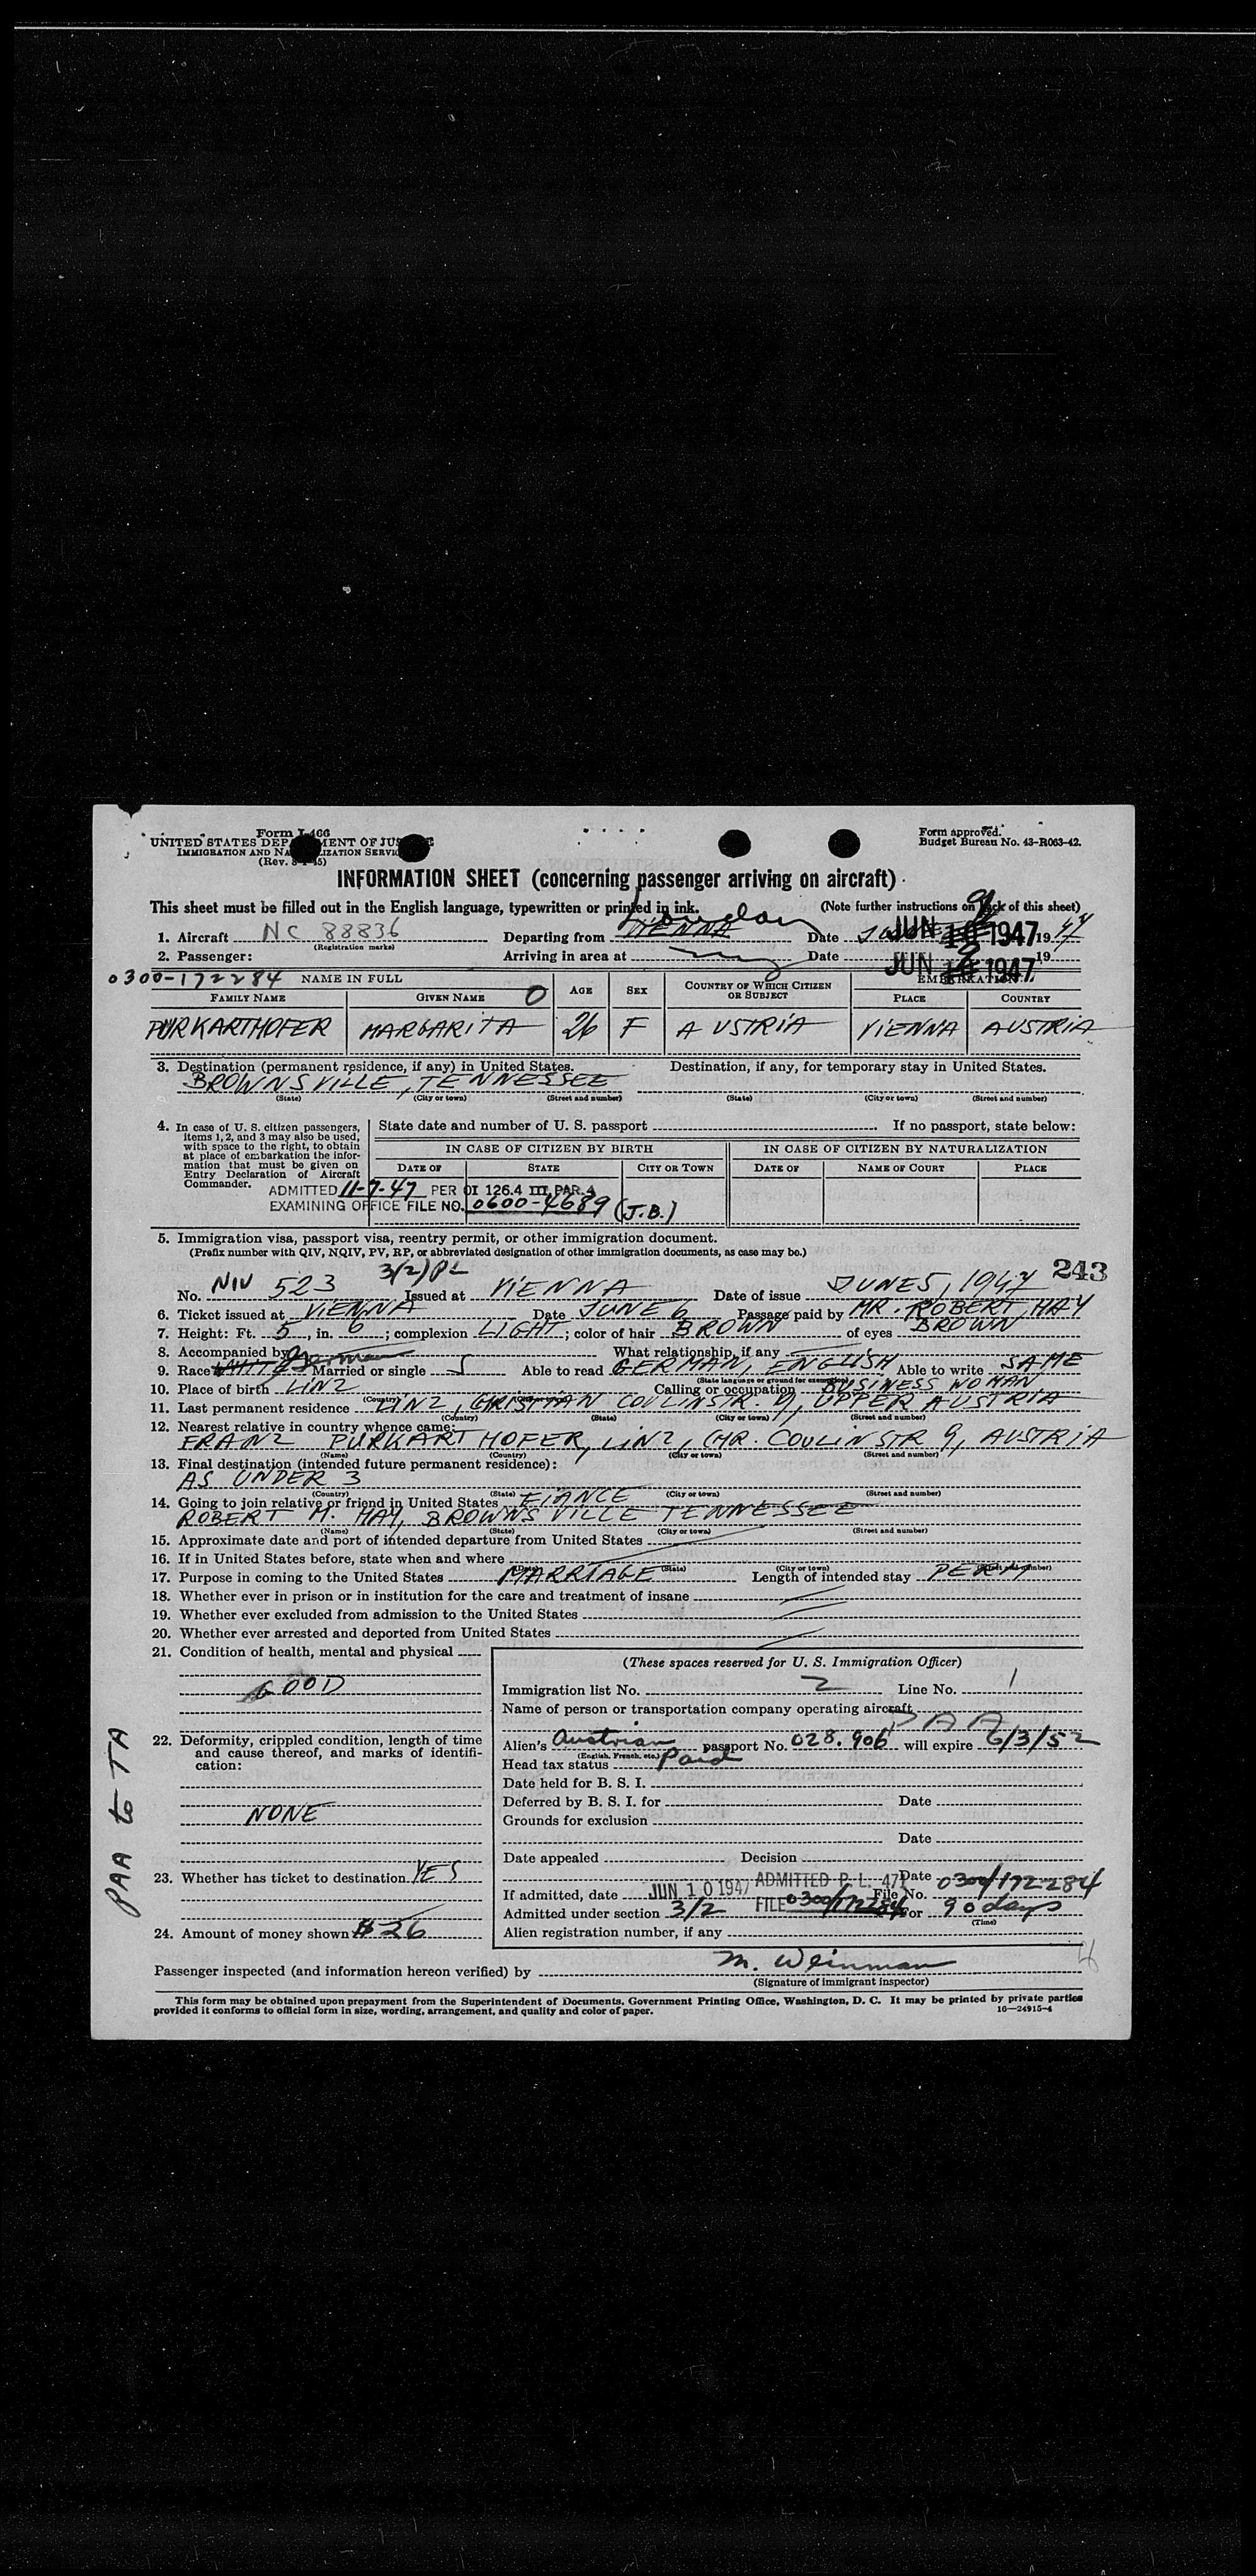 Form I-466
UNITED STATES DEPARTMENT OF JUSTICE
IMMIGRATION AND NATURALIZATION SERVICE
(Rev. 8-1-45)
Form approved.
Budget Bureau No. 43-R063-42.
INFORMATION SHEET (concerning passenger arriving on aircraft)
This sheet must be filled out in the English language, typewritten or printed in ink. (Note further instructions on back of this sheet)
London
1. Aircraft NC 88836 Departing from VIENNA Date JUN 1947 19 47
(Registration marks)
2. Passenger: Arriving in area at Date JUN 1947 19
0300-172284 NAME IN FULL AGE SEX COUNTRY OF WHICH CITIZEN OR SUBJECT EMBARKATION
FAMILY NAME GIVEN NAME PLACE COUNTRY
PURKARTHOFER MARGARITA 26 F AUSTRIA VIENNA AUSTRIA
3. Destination (permanent residence, if any) in United States. Destination, if any, for temporary stay in United States.
BROWNSVILLE, TENNESSEE
(State) (City or town) (Street and number) (State) (City or town) (Street and number)
4. In case of U. S. citizen passengers, items 1, 2, and 3 may also be used, with space to the right, to obtain at place of embarkation the information that must be given on Entry Declaration of Aircraft Commander.
State date and number of U. S. passport If no passport, state below:
IN CASE OF CITIZEN BY BIRTH IN CASE OF CITIZEN BY NATURALIZATION
DATE OF STATE CITY OR TOWN DATE OF NAME OF COURT PLACE
ADMITTED 11-7-47 PER OI 126.4 III PAR. 4
EXAMINING OFFICE FILE NO. 0600-4689 (J.B.)
5. Immigration visa, passport visa, reentry permit, or other immigration document.
(Prefix number with QIV, NQIV, PV, RP, or abbreviated designation of other immigration documents, as case may be.)
243
No. NIV 523 3(2) PL Issued at VIENNA Date of issue JUNE 5, 1947
6. Ticket issued at VIENNA Date JUNE 6 Passage paid by MR. ROBERT HAY
7. Height: Ft. 5, in. 6; complexion LIGHT; color of hair BROWN of eyes BROWN
8. Accompanied by What relationship, if any
9. Race WHITE German Married or single S Able to read GERMAN, ENGLISH Able to write SAME
(State language or ground for exemption)
10. Place of birth LINZ Calling or occupation BUSINESS WOMAN
11. Last permanent residence LINZ, CHRISTIAN COULINSTR. 9, UPPER AUSTRIA
(Country) (State) (City or town) (Street and number)
12. Nearest relative in country whence came:
FRANZ PURKARTHOFER, LINZ, CHR. COULIN STR 9, AUSTRIA
(Name) (Country) (City or town) (Street and number)
13. Final destination (intended future permanent residence):
AS UNDER 3
(Country) (State) (City or town) (Street and number)
14. Going to join relative or friend in United States FIANCE
ROBERT M. HAY, BROWNSVILLE TENNESSEE
(Name) (State) (City or town) (Street and number)
15. Approximate date and port of intended departure from United States
16. If in United States before, state when and where
(Date) (State) (City or town) (Street and number)
17. Purpose in coming to the United States MARRIAGE Length of intended stay PERM
18. Whether ever in prison or in institution for the care and treatment of insane
19. Whether ever excluded from admission to the United States
20. Whether ever arrested and deported from United States
21. Condition of health, mental and physical
GOOD
22. Deformity, crippled condition, length of time and cause thereof, and marks of identification:
NONE
23. Whether has ticket to destination YES
24. Amount of money shown $ 26
PAA to TA
(These spaces reserved for U. S. Immigration Officer)
Immigration list No. 2 Line No. 1
Name of person or transportation company operating aircraft PAA
Alien's Austrian passport No. 028.906 will expire 6/3/52
(English, French, etc.)
Head tax status Paid
Date held for B. S. I.
Deferred by B. S. I. for Date
Grounds for exclusion
Date
Date appealed Decision
ADMITTED P. L. 471 Date
If admitted, date JUN 10 1947 FILE 0300/172284 File No. 0300/172284
Admitted under section 3/2 For 90 days
(Time)
Alien registration number, if any
Passenger inspected (and information hereon verified) by M. Weinman
(Signature of immigrant inspector)
This form may be obtained upon prepayment from the Superintendent of Documents, Government Printing Office, Washington, D. C. It may be printed by private parties
provided it conforms to official form in size, wording, arrangement, and quality and color of paper. 16—24915-4